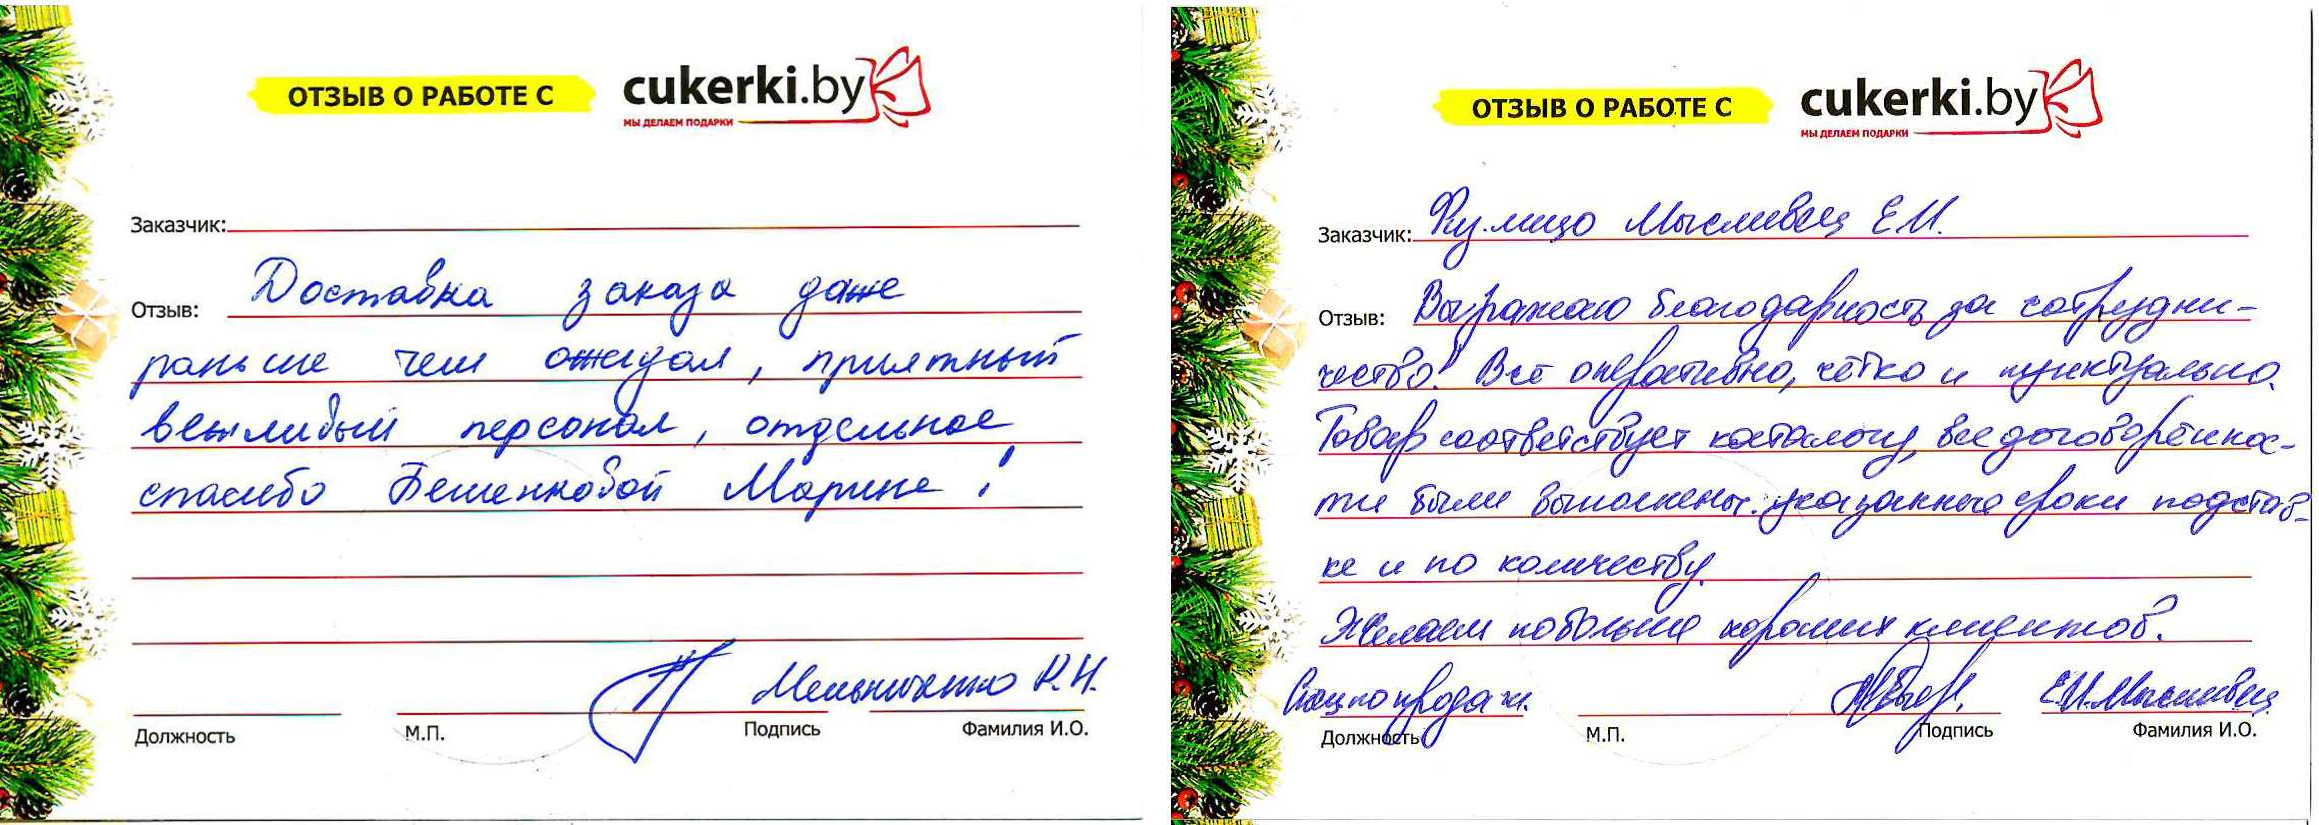 ОТЗЫВ О РАБОТЕ С cukerki.by
МЫ ДЕЛАЕМ ПОДАРКИ
Заказчик:
Отзыв: Доставка заказа даже
раньше чем ожидал, приятный
вежливый персонал, отдельное
спасибо Бешенковой Марине!
Мельниченко К.Н.
Должность М.П. Подпись Фамилия И.О.
ОТЗЫВ О РАБОТЕ С cukerki.by
МЫ ДЕЛАЕМ ПОДАРКИ
Заказчик: Физ.лицо Мысливец Е.И.
Отзыв: Выражаю благодарность за сотрудни-
чество! Всё оперативно, чётко и пунктуально.
Товар соответствует каталогу, все договорённос-
ти были выполнены. указанные сроки по достав-
ке и по количеству.
Желаем побольше хороших клиентов.
Спец по продаж. Е.И. Мысливец
Должность М.П. Подпись Фамилия И.О.